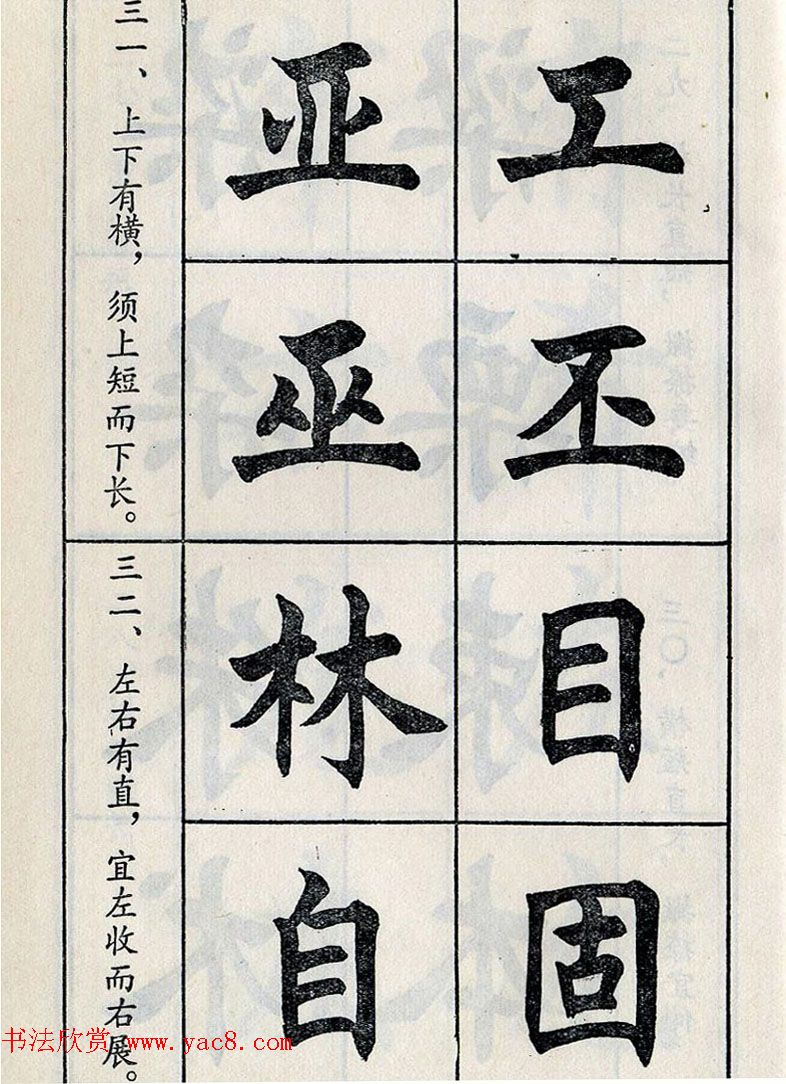 三一、上下有横，须上短而下长。
工 亚
丕 巫
三二、左右有直，宜左收而右展。
目 林
固 自
书法欣赏 www.yac8.com